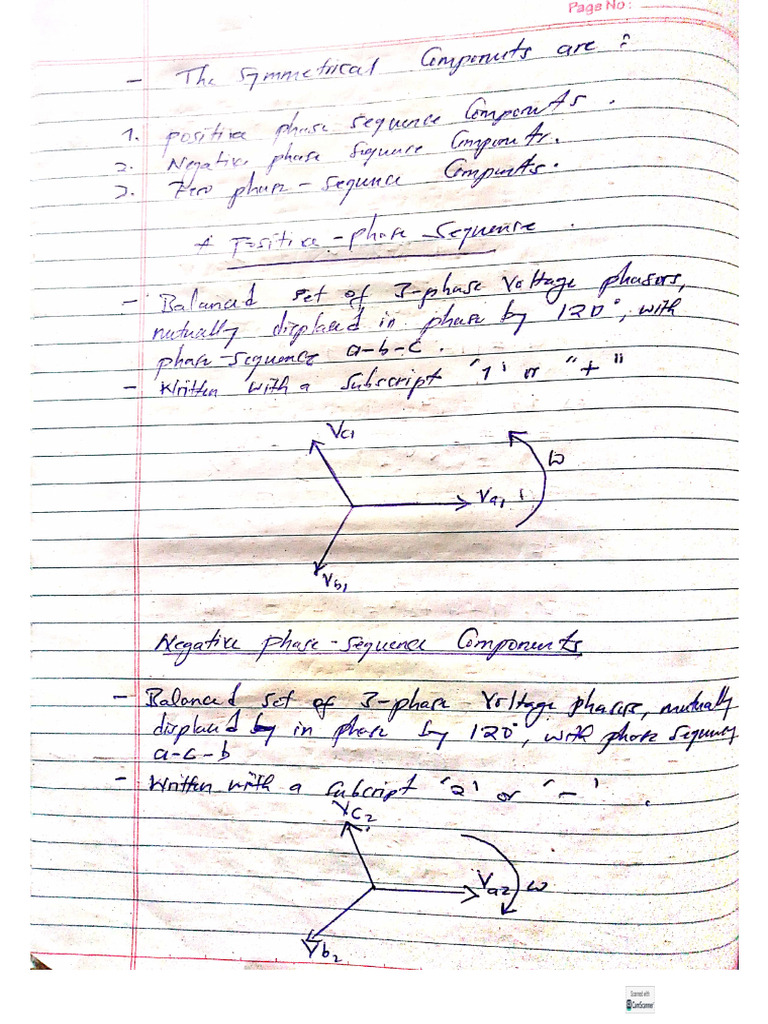 Page No:
- The symmetrical Components are :
1. positive phase sequence Components.
2. Negative phase sequence Components.
3. Zero phase-sequence Components.
* Positive-phase-sequence.
- Balanced set of 3-phase voltage phasors,
mutually displaced in phase by 120°, with
phase-sequence a-b-c.
- Written with a subscript '1' or "+"
Vc1
ω
Va1
Vb1
Negative phase-sequence Components
- Balanced set of 3-phase voltage phasors, mutually
displaced in phase by 120°, with phase sequency
a-c-b
- Written with a subcript '2' or '-'.
Vc2
Va2 ω
Vb2
Scanned with
CamScanner